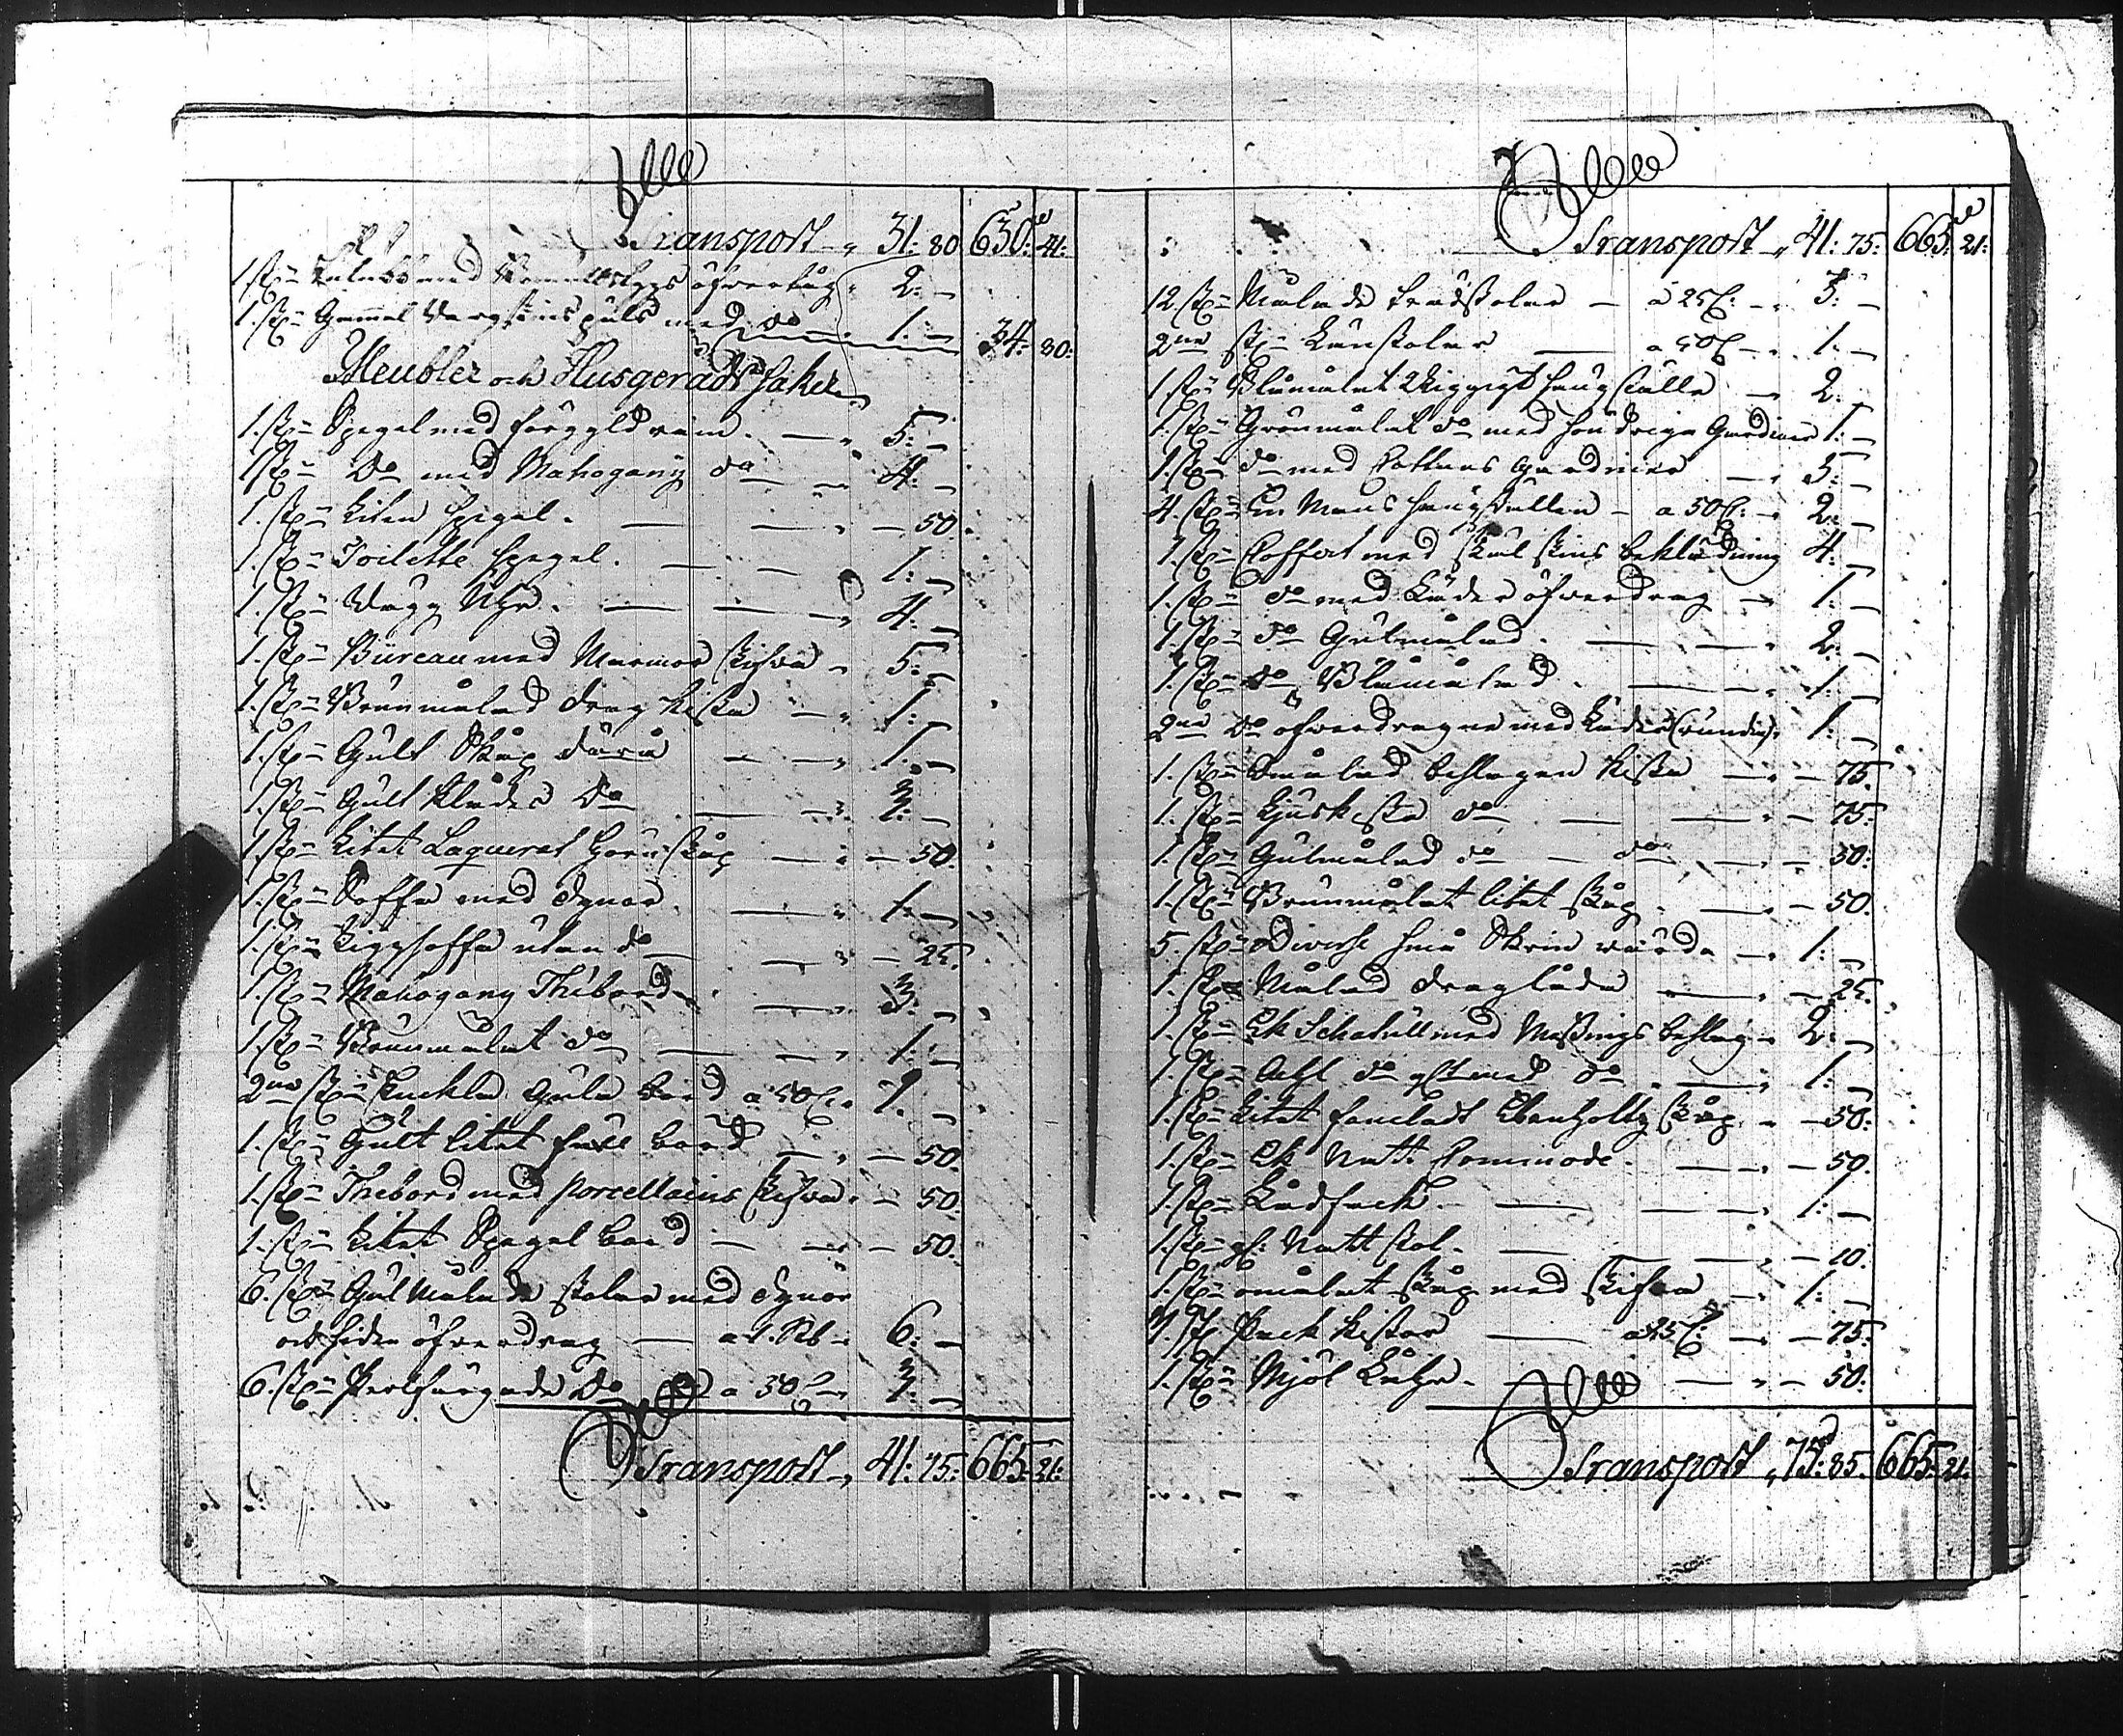 Transport „ 31: 80 630: 41:
1. st: med öfvertÿg „ 2: —
1. st: Gammal Vargskins päls med do 1: — 34: 80:
Meubler och Husgeråds saker
1. st: Spegel med förgyld ram — „ 5: —
1. st: Do med Mahogany do — 4: —
1. st: Liten spegel. — — „ — 50.
1. st: Toilette spegel. — — 1: —
1. st: Vägg Uhr. — — „ 4: —
1. st: Büreau med Marmor skifva „ 5: —
1. st: Brunmålad drag kista — „ 1: —
1. st: Gult Skåp — „ 1: —
1. st: Gult Kläder Do — „ —
1. st: Litet Laquerat hörn skåp — „ — 50.
1. st: Soffa med dynor. — „ 1: —
1. st: Liggsoffa utan do — „ — 25.
1. st: Mahogany Thébord — „ 3: —
1. st: Brunmålat do — — „ 1: —
2ne st: Enckla gula bord a 50 C. „ 1. —
1. st: Gult litet bord — „ — 50.
1. st: Thebord med porcellains skifva „ — 50.
1. st: Litet Spegel bord — — — 50.
6. st: Gul målade stolar med dynor
och siden öfverdrag — a 1. Rb „ 6: —
6. st: Perlfärgade Do a 50 C „ 3. —
Transport „ 41: 75: 665: 21:
Transport „ 41: 75: 665: 21:
12 st: Målade trädstolar — à 25 C: „ 3: —
2ne st: Länstolar — a 50 C — „ 1. —
1 st: Blåmålat sängställe — 2: —
1. st: Grönmålat do med Gardiner 1: —
1. st: do med Cattuns gardiner — „ 3: —
4. st: En Mans sängställen — a 50 C: „ 2: —
1. st: Coffert med skins beklädning 4: —
1. st: do med Läder öfverdrag — 1: —
1. st: do Gulmålad. — — „ 2: —
1. st: do Blåmålad. — — „ 1: —
2ne do öfverdragne med Läder (runda) „ 1: —
1. st: Omålad beslagen kista — „ — 75.
1. st: do — — „ — 75.
1. st: Gulmålad do — do — „ — 50:
1. st: Brunmålat litet skåp — „ — 50.
5. st: Diverse små Skrin — „ 1: —
1. st: Målad draglåda — „ — 25.
1. st: Ek Schatull med Messings beslag „ 2: —
1. st: do med do — „ 1: —
1. st: Litet Ebenholtz skåp „ — 50:
1. st: Ek Natt Commode. — „ — 50.
1. st: — — „ 1: —
1. st: gl: Natt stol. — — „ — 10.
1. st: omålat skåp med skifva — „ 1: —
3. st. Pack kistor — a 25 C: — „ — 75:
1. st: Mjöl — — „ — 50:
Transport „ 73: 85. 665: 21: